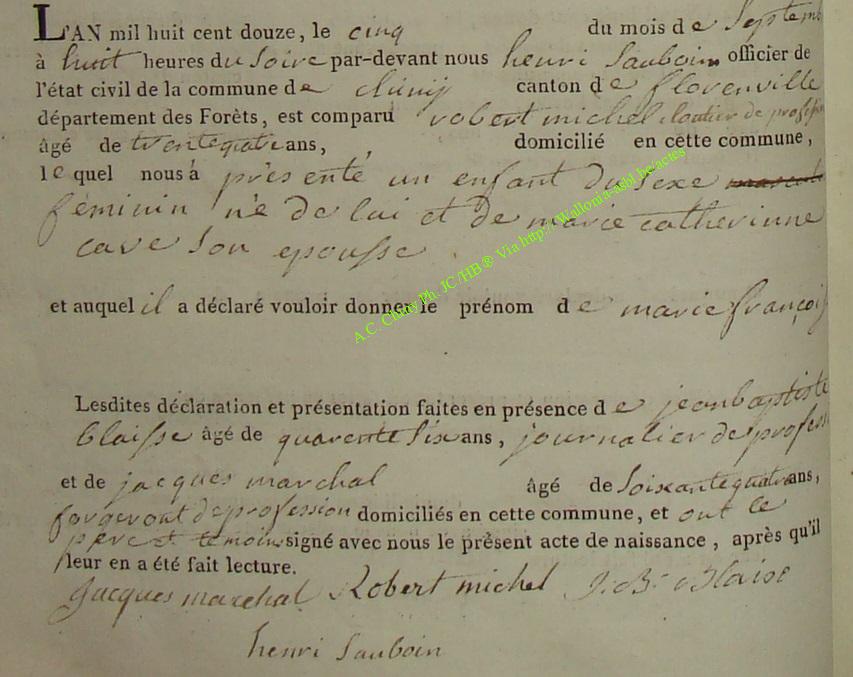 L'AN mil huit cent douze, le cinq du mois de Septemb
à huit heures du Soire par-devant nous henri Sauboin officier de
l'état civil de la commune de chiny canton de florenville
département des Forêts, est comparu robert michel cloutier de profession
âgé de trentequatre ans, domicilié en cette commune,
le quel nous à présenté un enfant du sexe
féminin né de lui et de marie catherinne
cave son epousse
et auquel il a déclaré vouloir donner le prénom de marie françois
Lesdites déclaration et présentation faites en présence de jeanbaptiste
blaisse âgé de quarente Six ans, journalier de profess
et de jacques marchal âgé de Soixantequatre ans,
forgeront de profession domiciliés en cette commune, et ont le
pere et temoins signé avec nous le présent acte de naissance, après qu'il
leur en a été fait lecture.
Jacques marchal Robert michel J. B. Blaise
henri Sauboin
A.C. Chiny Ph. JC/HB® Via http://Wallonia-asbl.be/actes